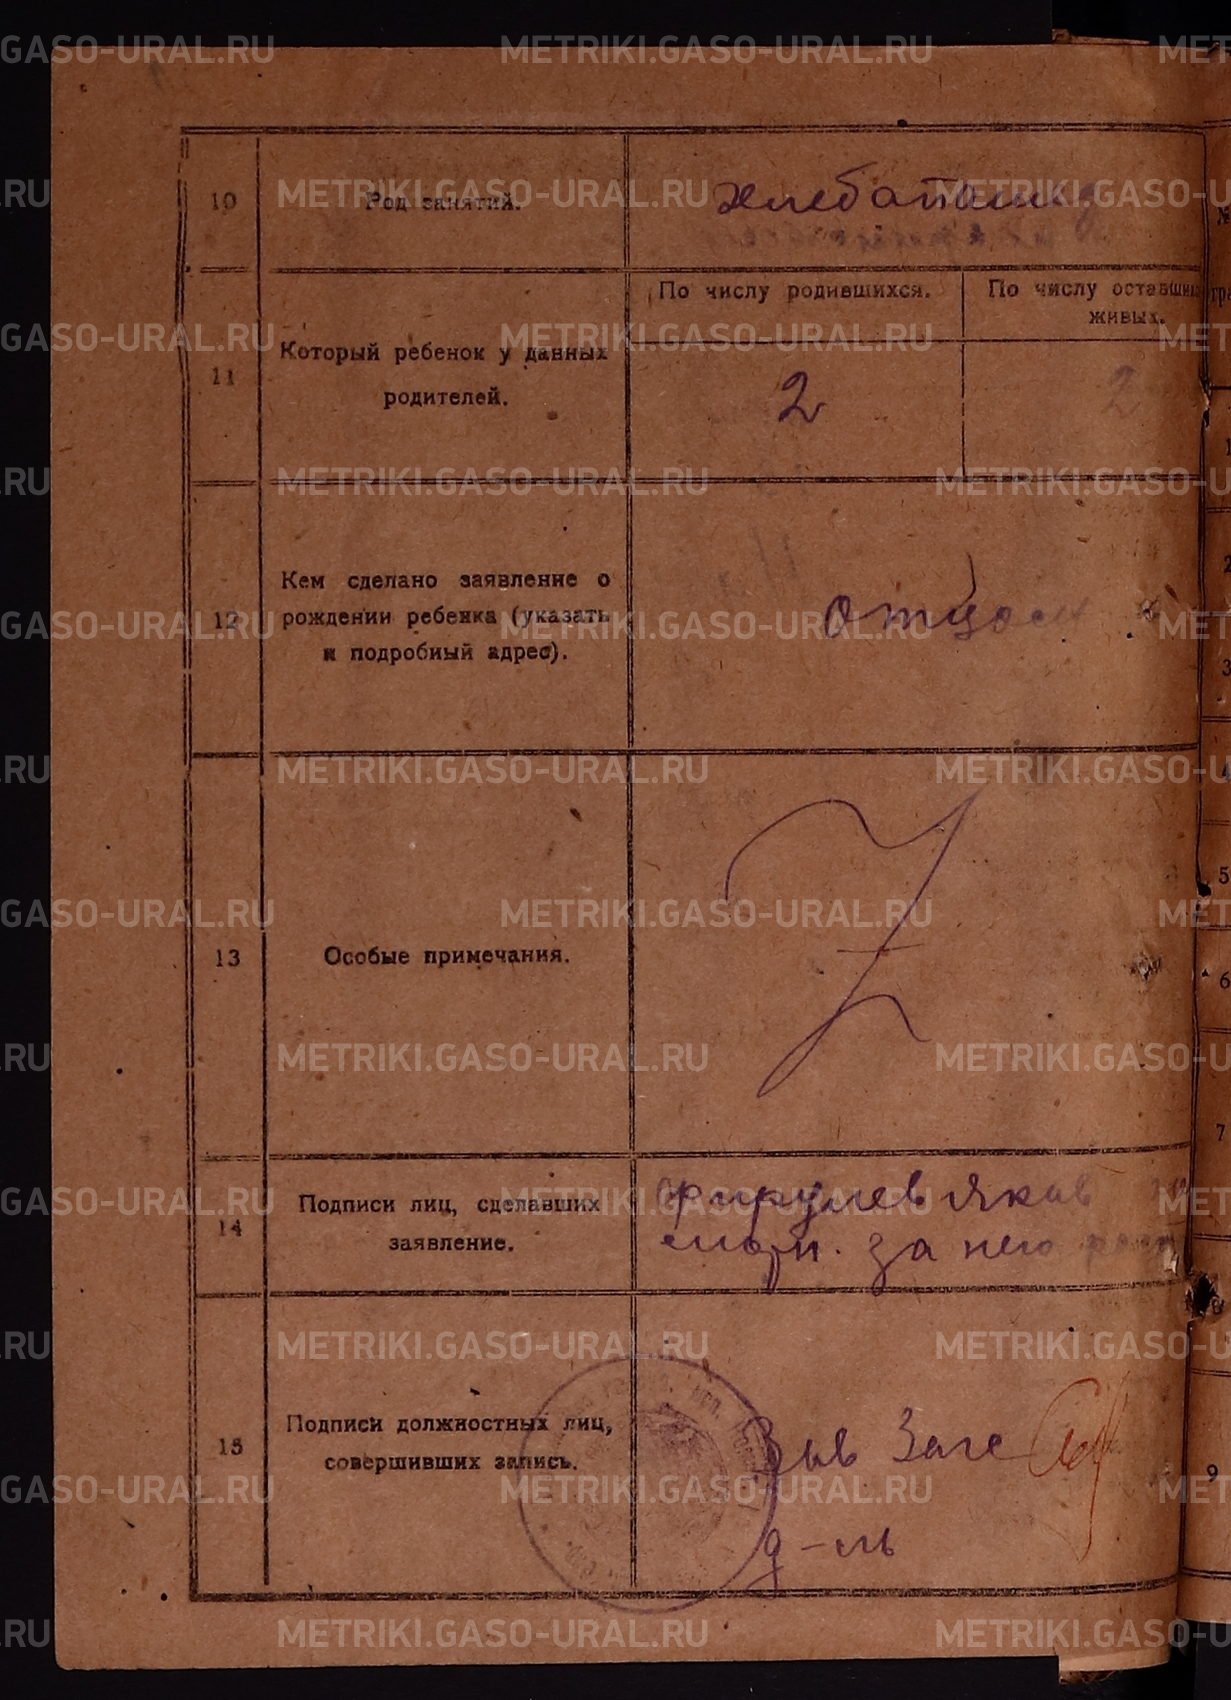 METRIKI.GASO-URAL.RU
10
Род занятий.
хлебопашец
11
Который ребенок у данных
родителей.
По числу родившихся.
По числу оставших
живых.
2
2
12
Кем сделано заявление о
рождении ребенка (указать
и подробный адрес).
отцом
13
Особые примечания.
14
Подписи лиц, сделавших
заявление.
Фирулев Яков
за него
15
Подписи должностных лиц,
совершивших запись.
Зав Загс
д-ль
1
2
3
4
5
6
7
8
9